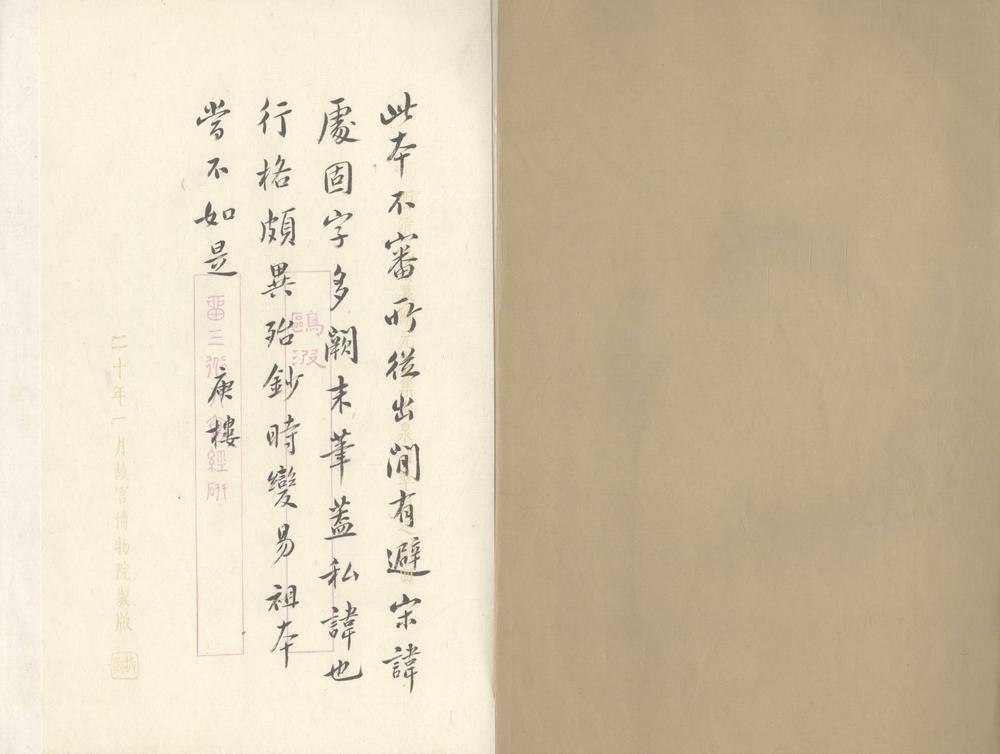 此本不審所從出間有避宋諱
處固字多闕末筆蓋私諱也
行格頗異殆鈔時變易祖本
當不如是
庚樓
二十年一月故宮博物院製版